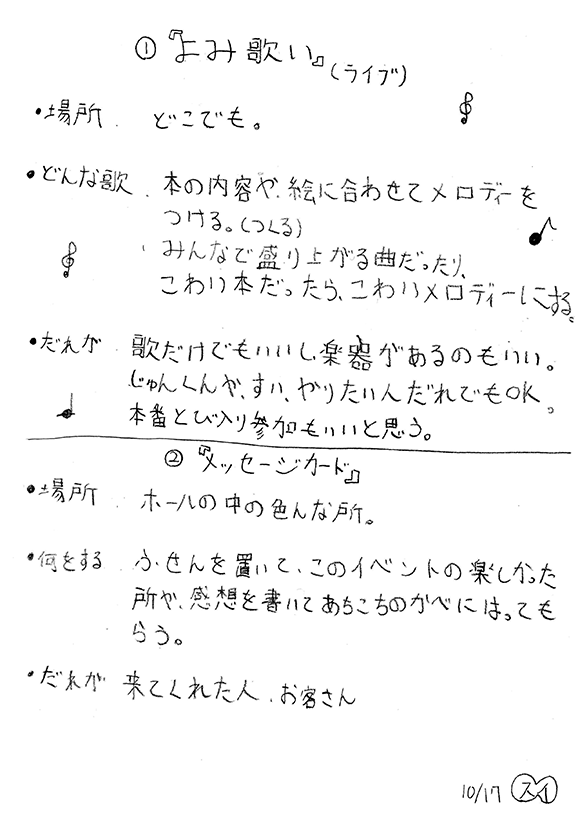 ① 『よみ歌い』(ライブ)
・場所 どこでも。
・どんな歌 本の内容や、絵に合わせてメロディーを
つける。(つくる)
みんなで盛り上がる曲だったり、
こわい本だったら、こわいメロディーにする。
・だれが 歌だけでもいいし、楽器があるのもいい。
じゅんくんや、すい、やりたい人だれでもOK。
本番とび入り参加もいいと思う。
② 『メッセージカード』
・場所 ホールの中の色んな所。
・何をする ふせんを置いて、このイベントの楽しかった
所や、感想を書いてあちこちのかべにはっても
らう。
・だれが 来てくれた人、お客さん
10/17 スイ